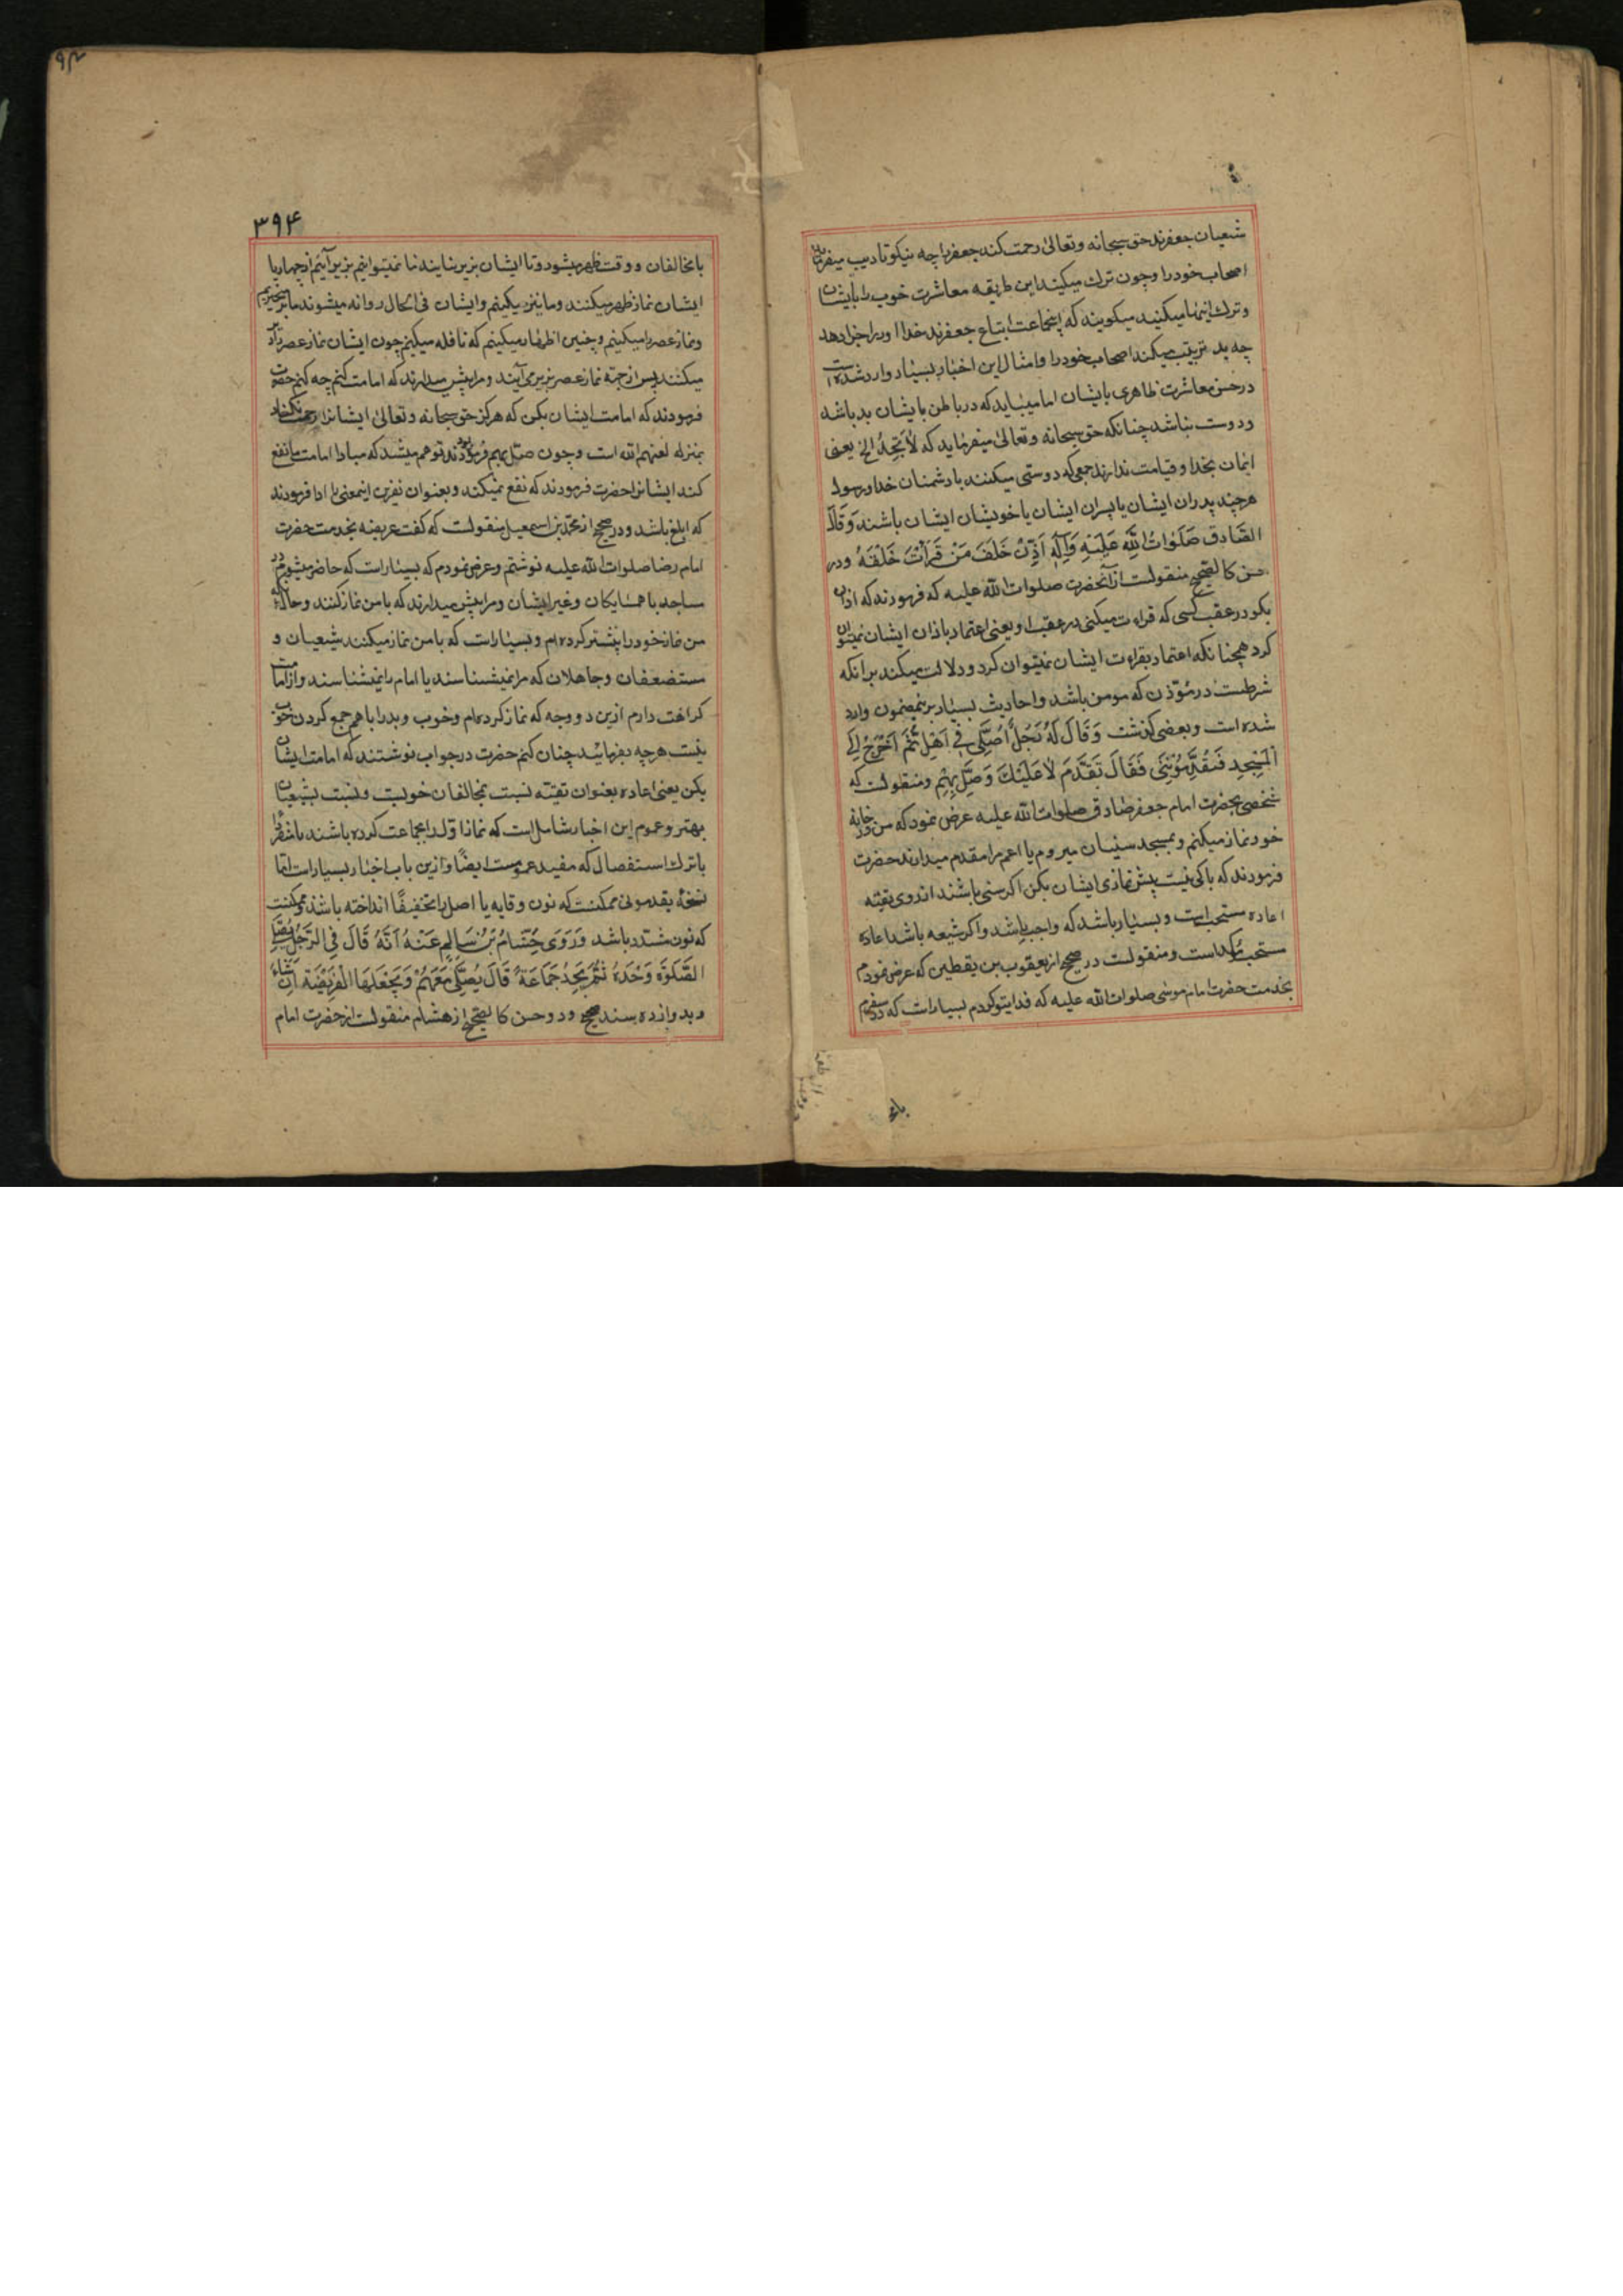 شعیان جعفرند حق سبحانه و تعالی رحمت کند جعفر را چه نیکو تادیب میفرماید
اصحاب خود را و چون ترک میکنید این طریقه معاشرت خوب را بایشان
و ترک اینها میکنید میکویند که اینجماعت اتباع جعفرند خدا او را جزا دهد
چه بد تربیت میکند اصحاب خود را و امثال این اخبار بسیار وارد شده است
در حسن معاشرت ظاهری بایشان اما میباید که در باطن بایشان بد باشد
و دوست نباشد چنانکه حق سبحانه و تعالی میفرماید که لا تجد الخ یعنی
ایمان بخدا و قیامت ندارند جمعی که دوستی میکنند با دشمنان خدا و رسول
هرچند پدران ایشان یا پسران ایشان یا خویشان ایشان باشند وَقَالَ
الصَّادِقُ صَلَوٰاتُ اللّٰهِ عَلَیْهِ وَآلِهِ اَذِّنْ خَلْفَ مَنْ قَرَأْتَ خَلْفَهُ و در
حسن کالصحیح منقولست از آنحضرت صلوات الله علیه که فرمودند که اذان
بکو در عقب کسی که قراءت میکنی در عقب او یعنی اعتماد باذان ایشان نمیتوان
کرد همچنانکه اعتماد بقراءت ایشان نمیتوان کرد و دلالت میکند بر انکه
شرطست در مؤذن که مومن باشد و احادیث بسیار برینمضمون وارد
شده است و بعضی کذشت وَ قَالَ لَهُ رَجُلٌ اُصَلِّی فِی اَهْلِی ثُمَّ اَخْرُجُ اِلَی
الْمَسْجِدِ فَیُقَدِّمُونِی فَقَالَ تَقَدَّمْ لاٰ عَلَیْكَ وَ صَلِّ بِهِمْ و منقولست که
شخصی بحضرت امام جعفر صادق صلوات الله علیه عرض نمود که من در خانه
خود نماز میکنم و بمسجد سنیان میروم یا اعم مرا مقدم میدارند حضرت
فرمودند که باکی نیست پیش نمازی ایشان بکن اکر سنی باشند از روی تقیّه
اعاده مستحب است و بسیار باشد که واجب باشد و اکر شیعه باشد اعاده
مستحب مؤکد است و منقولست در صحیح از یعقوب بن یقطین که عرض نمودم
بخدمت حضرت امام موسی صلوات الله علیه که فدایتو کردم بسیار است که در سفرم
با مخ
۳۹۴
با مخالفان و وقت ظهر میشود و تا ایشان بزیر نیایند ما نمیتوانیم بزیر آییم از چهارپا
ایشان نماز ظهر میکنند و ما بزیر میآییم و ایشان فی الحال روانه میشوند ما برمیخیزیم
و نماز عصر را میکنیم و چنین اظهار میکنیم که نافله میکنیم چون ایشان نماز عصر را دیر
میکنند پس از جهة نماز عصر بزیر می آیند و مرا پیش میدارند که امامت کنم چه کنم حضرت
فرمودند که امامت ایشان بکن که هرکز حق سبحانه و تعالی ایشانرا رحمت نکناد
بمنزله لعنهم الله است و چون صلّ بهم فرمودند توهم میشد که مبادا امامت ما نفع
کند ایشانرا حضرت فرمودند که نفع نمیکند و بعنوان نفرین اینمعنی را ادا فرمودند
که ابلغ باشد و در صحیح از محمد بن اسمعیل منقولست که کفت عریضه بخدمت حضرت
امام رضا صلوات الله علیه نوشتم و عرض نمودم که بسیار است که حاضر میشوم در
مساجد با همسایکان و غیر ایشان و مرا پیش میدارند که با من نماز کنند و حال آنکه
من نماز خود را پیشتر کرده ام و بسیار است که با من نماز میکنند شیعیان و
مستضعفان و جاهلان که مرا نمیشناسند یا امام را نمیشناسند و از امامت
کراهت دارم ازین دو وجه که نماز کرده ام و خوب و بد را با هم جمع کردن خوب
نیست هرچه بفرمائید چنان کنم حضرت در جواب نوشتند که امامت ایشان
بکن یعنی اعاده بعنوان تقیّه نسبت بمخالفان خوبست و نسبت بشیعیان
بهتر و عموم این اخبار شامل است که نماز اول را بجماعت کرده باشند یا منفرد
با ترک استفصال که مفید عموم است ایضًا و ازین باب اخبار بسیار است اما
نسخهٔ یقدمونی ممکنست که نون وقایه یا اصل را تخفیفًا انداخته باشند و ممکنست
که نون مشدد باشد وَ رَوَی هِشَامُ بْنُ سَالِمٍ عَنْهُ اَنَّهُ قَالَ فِی الرَّجُلِ یُصَلِّی
الصَّلوٰةَ وَحْدَهُ ثُمَّ یَجِدُ جَمَاعَةً قَالَ یُصَلِّی مَعَهُمْ وَ یَجْعَلُهَا الْفَرِیْضَةَ اِنْ شَاءَ
و بدوازده سند صحیح و دو حسن کالصحیح از هشام منقولست از حضرت امام